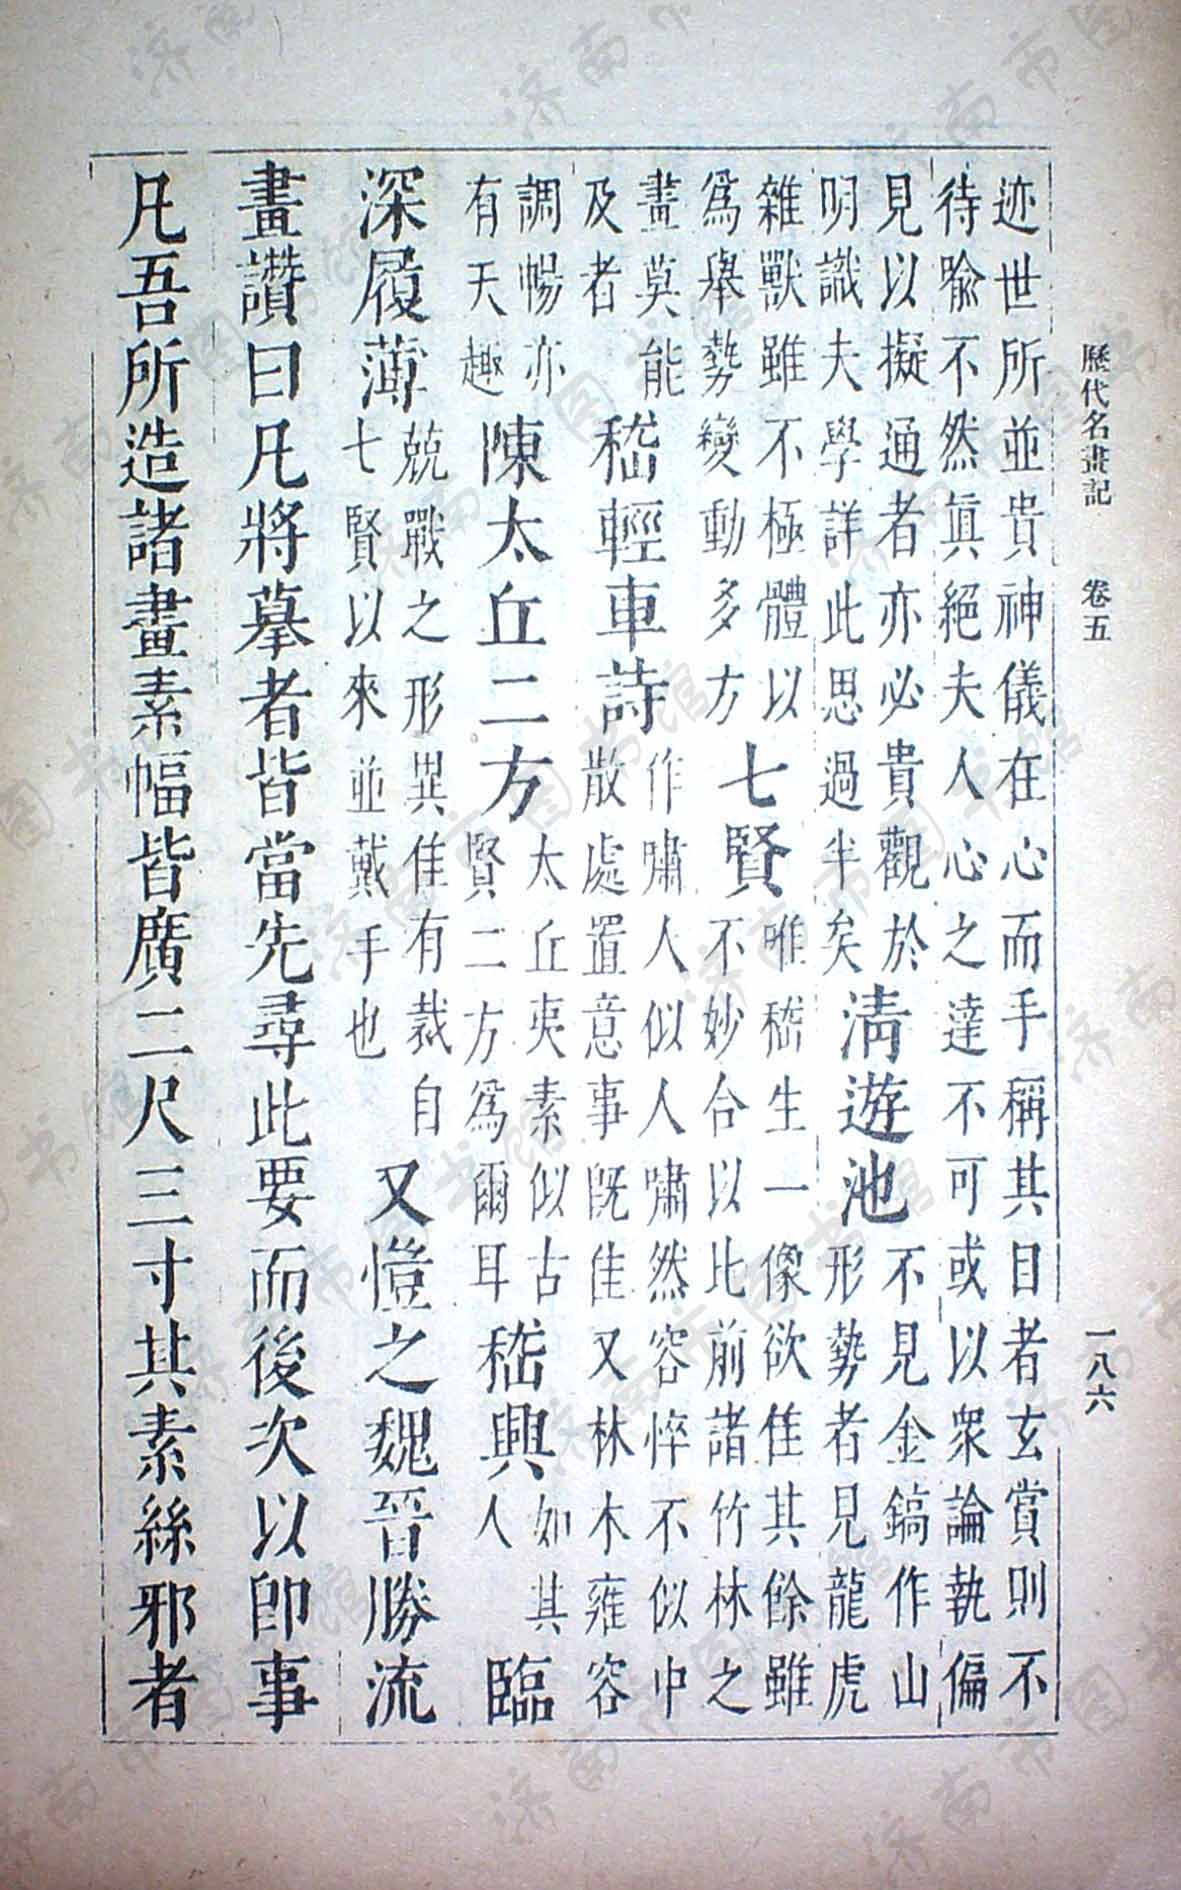 歷代名畫記 卷五 一八六
迹世所並貴神儀在心而手稱其目者玄賞則不
待喻不然眞絕夫人心之達不可或以衆論執偏
見以擬通者亦必貴觀於
明識夫學詳此思過半矣
清遊池
不見金鎬作山
形勢者見龍虎
雜獸雖不極體以
爲舉勢變動多方
七賢
唯嵇生一像欲佳其餘雖
不妙合以比前諸竹林之
畫莫能
及者
嵇輕車詩
作嘯人似人嘯然容悴不似中
散處置意事既佳又林木雍容
調暢亦
有天趣
陳太丘二方
太丘夷素似古
賢二方爲爾耳
嵇興
如其
人
臨
深履薄
兢戰之形異佳有裁自
七賢以來並戴手也
又愷之魏晉勝流
畫讚曰凡將摹者皆當先尋此要而後次以卽事
凡吾所造諸畫素幅皆廣二尺三寸其素絲邪者
济南市图书馆